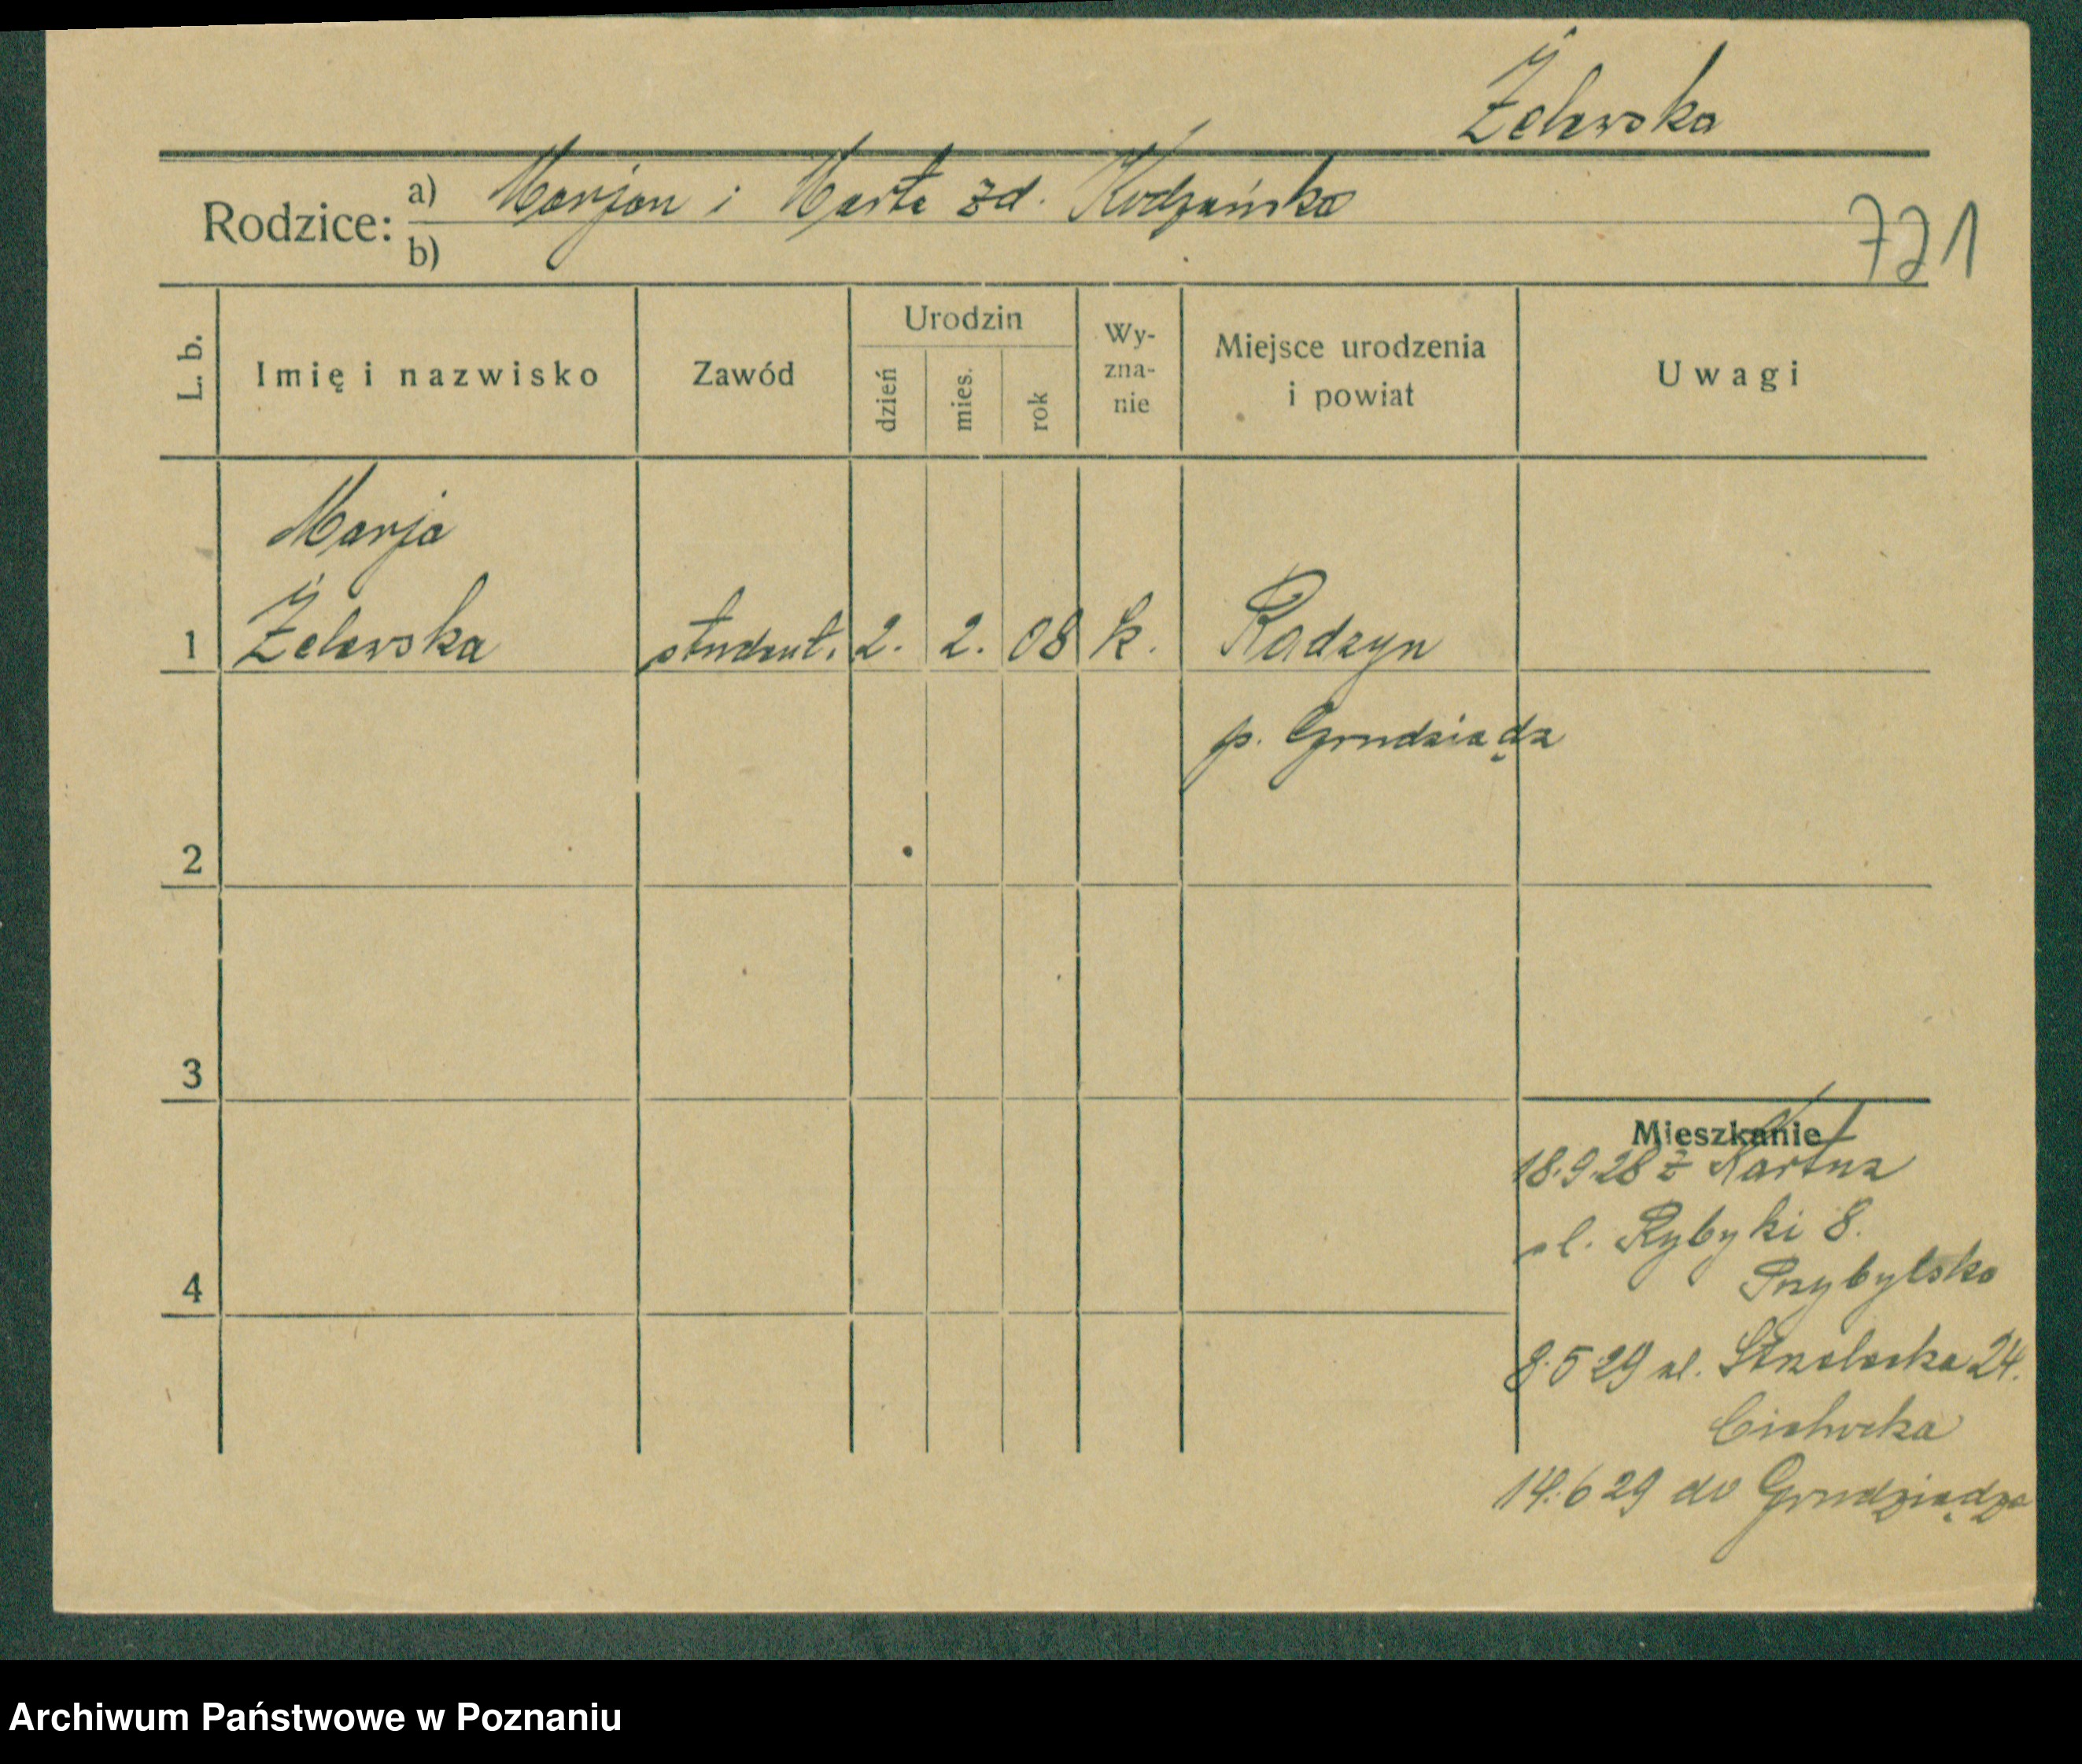 Żelewska
Rodzice: a) Marjan i Marta zd. Kodzańska
b)
721
L. b. Imię i nazwisko Zawód Urodzin dzień mies. rok Wy-zna-nie Miejsce urodzenia i powiat Uwagi
Marja
1 Żelewska student. 2. 2. 08 k. Radzyn
p. Grudziądz
2
3
Mieszkanie
18.9.28 z Kartuz
ul. Rybaki 8.
Przybylska
4
8.5 29 ul. Strzelecka 24.
Cichocka
14.6 29 do Grudziądza
Archiwum Państwowe w Poznaniu